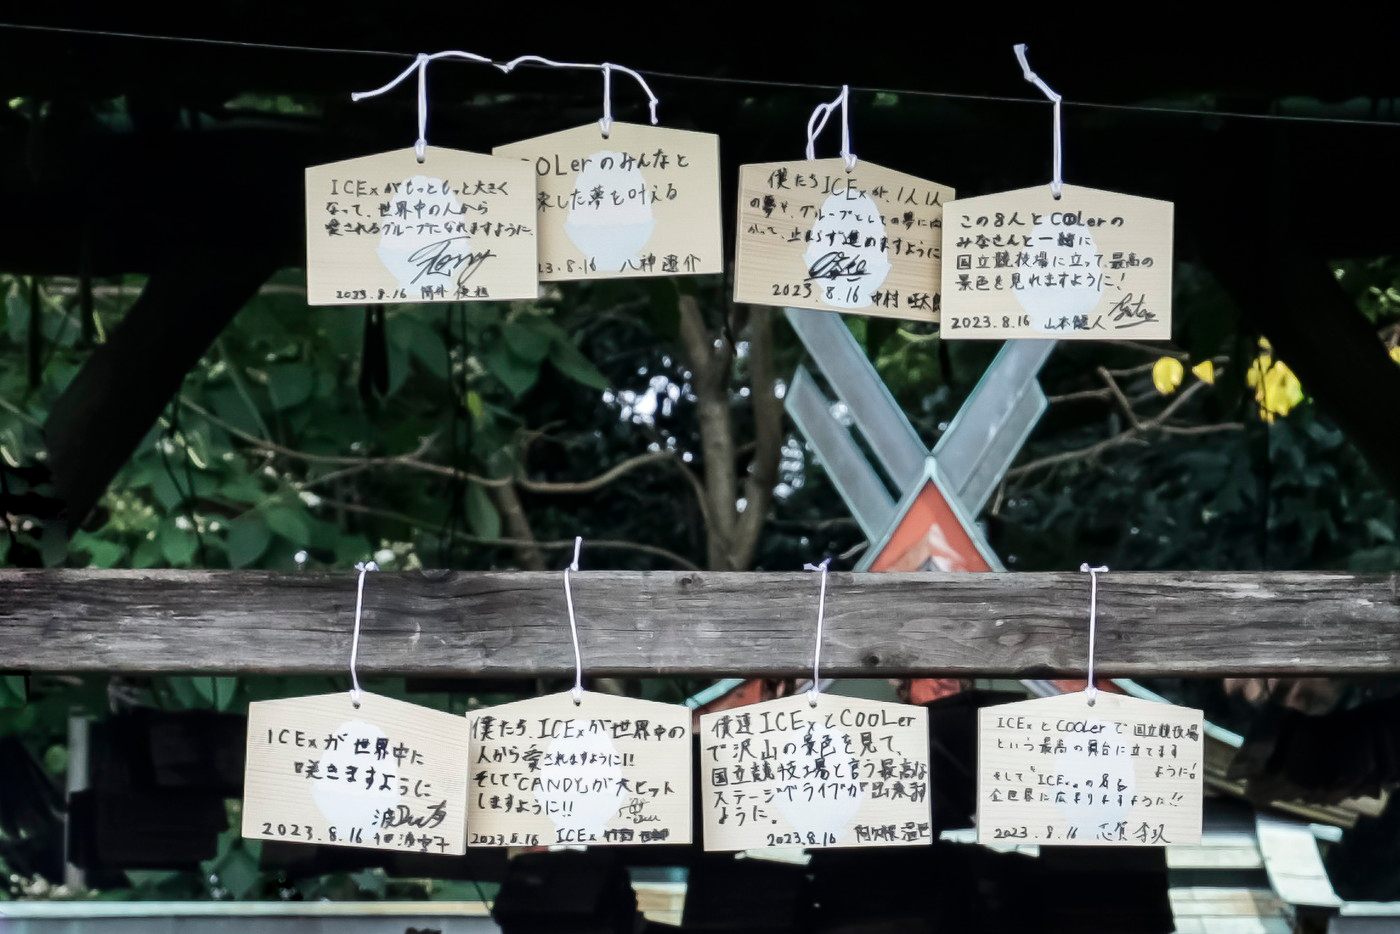 ICExがもっともっと大きく
なって、世界中の人から
愛されるグループになれますように。
2023.8.16 筒井俊旭
OOLerのみんなと
束した夢を叶える
23.8.16 八神遼介
僕たちICExが、1人1人
の夢や、グループとしての夢に向
かって、止まらず進めますように
2023.8.16 中村旺太郎
この8人とCOOLerの
みなさんと一緒に
国立競技場に立って、最高の
景色を見れますように!
2023.8.16 山本龍人
ICExが世界中に
咲きますように
2023.8.16
僕たち、ICExが世界中の
人から愛されますように!!
そして「CANDY」が大ヒット
しますように!!
2023.8.16 ICEx
僕達ICExとCOOLer
で沢山の景色を見て、
国立競技場と言う最高な
ステージでライブが出来ます
ように。
2023.8.16 阿久根温世
ICExとCOOLerで国立競技場
という最高の舞台に立てます
ように!
そして"ICE
全世界に広まりますように!!
2023.8.16 志賀李玖